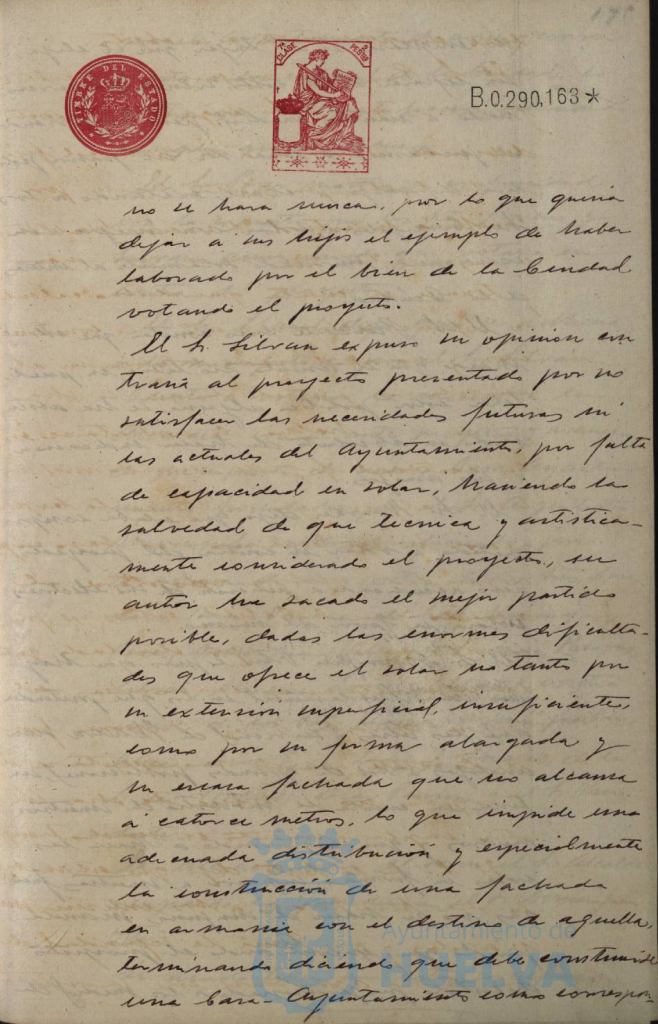 178
TIMBRE DEL ESTADO
7ª CLASE
2 PESETAS
B.0.290,163*
no se hara nunca, por lo que queria
dejar á sus hijos el ejemplo de haber
laborado por el bien de la Ciudad
votando el proyecto.
El Sr. Silvan expuso su opinion con
traria al proyecto presentado por no
satisfacer las necesidades futuras ni
las actuales del Ayuntamiento, por falta
de capacidad en solar, haciendo la
salvedad de que tecnica y artistica-
mente considerado el proyecto, su
autor ha sacado el mejor partido
posible, dadas las enormes dificulta-
des que ofrece el solar no tanto por
su extensión superficial, insuficiente,
como por su forma alargada y
su escasa fachada que no alcanza
á catorce metros, lo que impide una
adecuada distribución y especialmente
la construcción de una fachada
en armonia con el destino de aquella,
terminando diciendo que debe construirse
una Casa-Ayuntamiento como correspon-
Ayuntamiento de
HUELVA